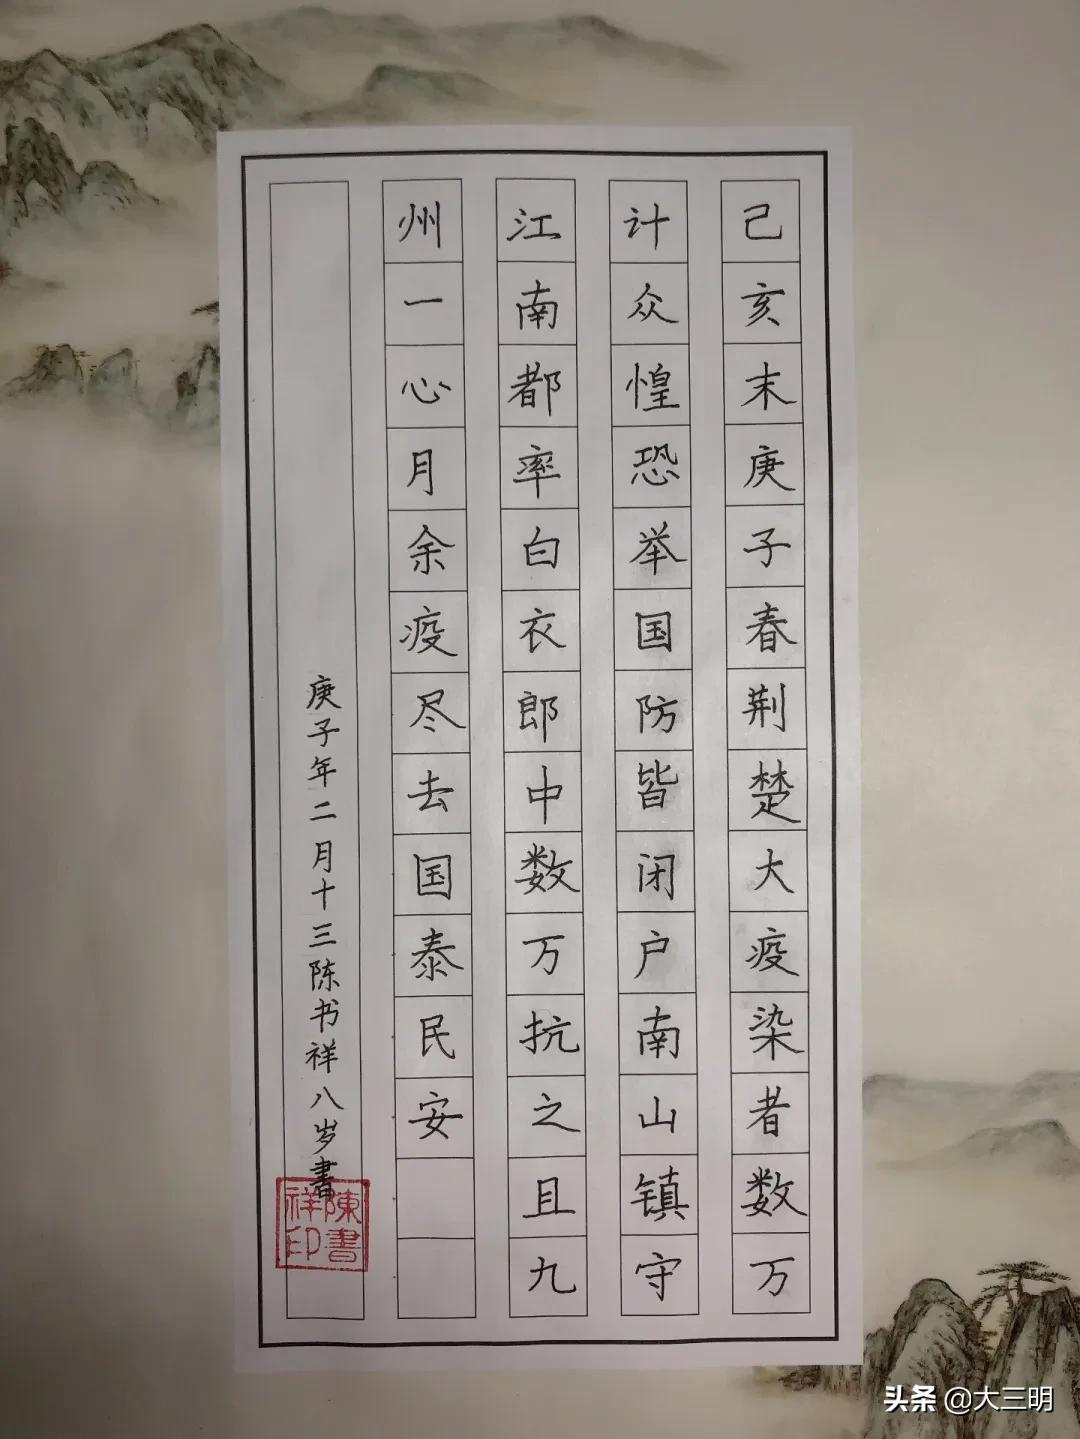 己亥末庚子春荆楚大疫染者数万
计众惶恐举国防皆闭户南山镇守
江南都率白衣郎中数万抗之且九
州一心月余疫尽去国泰民安
庚子年二月十三陈书祥八岁書
陳書祥印
头条 @大三明